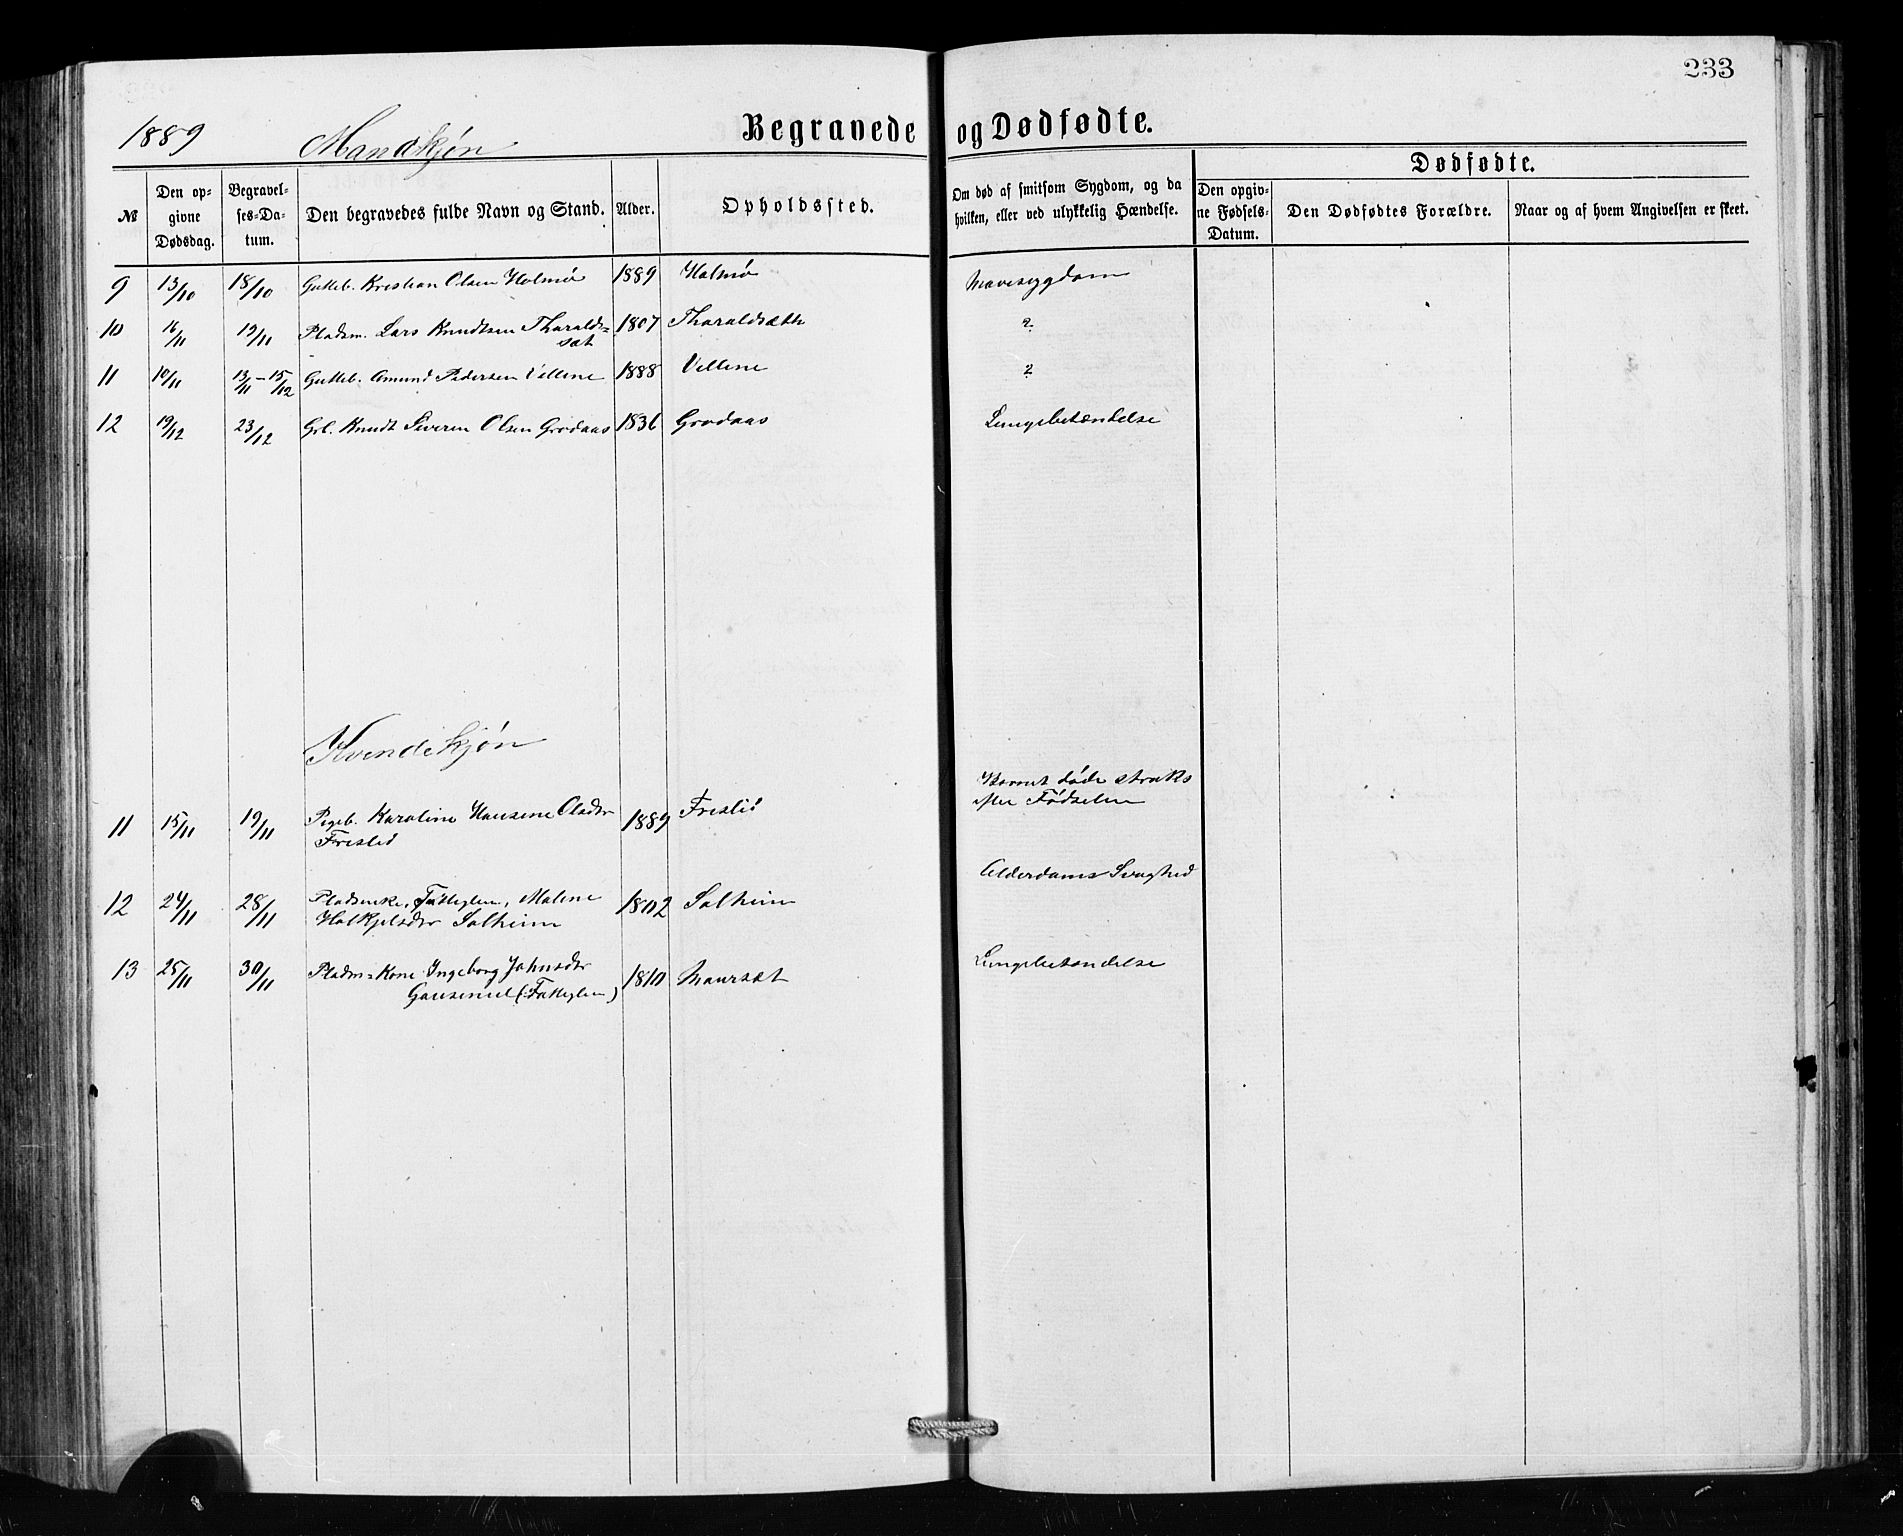 233
1889 Mandkjøn Begravede og Dødfødte.
Dødfødte.
№ Den opgivne Dødsdag. Begravelses-Datum. Den begravedes fulde Navn og Stand. Alder. Opholdssted. Om død af smitsom Sygdom, og da hvilken, eller ved ulykkelig Hændelse. Den opgivne Fødsels-Datum. Den Dødfødtes Forældre. Naar og af hvem Angivelsen er skeet.
9 13/10 18/10 Gutteb. Kristian Olsen Holmø 1889 Holmø Mavesygdom
10 16/11 19/11 Pladsm. Lars Knudtsen Tharalds= 1807 Tharaldsæth ?
sæt
11 10/11 13/11 - 15/12 Gutteb. Amund Pedersen Vellene 1888 Vellene ?
12 19/12 23/12 Grb. Knudt Severin Olsen Grodaas 1836 Grodaas Lungebetændelse
Kvindekjøn
Barnet døde straks
efter Fødselen
11 15/11 19/11 Pigeb. Karoline Hansine Olsdtr 1889 Freslid
Freslid
Alderdoms Svaghed
12 24/11 28/11 Pladsenke, Fattiglem, Malene 1802 Solheim
Holkjelsdtr Solheim
13 25/11 30/11 Pladm=Kone Ingeborg Johnsdtr 1810 Maursæt Lungebetændelse
(Fattiglem)